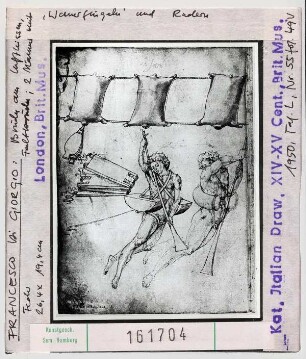 "Wasserflügeln" und Rudern
FRANCESCO di GIORGIO, Brücke an
2 Männer mit
Feder
26,4 x 19,4 cm
London, Brit. Mus.
Kat. Italian Draw. XIV-XV Cent. Brit. Mus.
1950, Taf. L, Nr. 55 fol. 49v
Kunstgesch.
Sem. Hamburg
161704